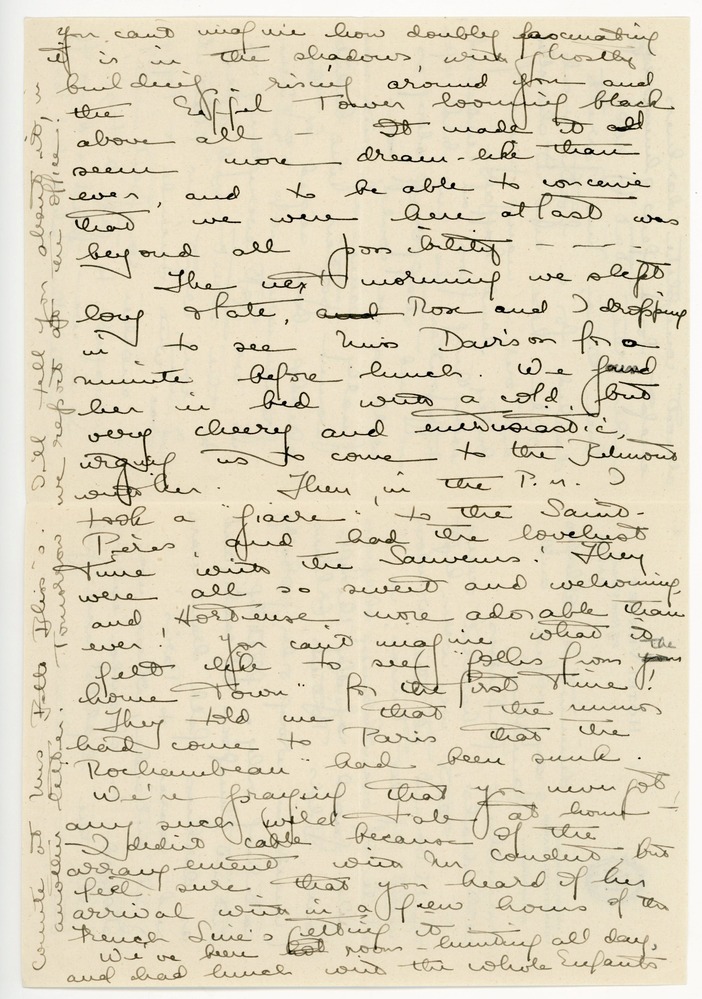 you can't imagine how doubly fascinating
it is in the shadows, with ghostly
buildings rising around you and
the Eiffel Tower looming black
above all — It made it all
seem more dream-like than
ever, and to be able to conceive
that we were here at last was
beyond all possibility - - - -
The next morning we slept
long & late, and Rose and I dropping
in to see Miss Davison for a
minute before lunch. We found
her in bed with a cold, but
very cheery and enthusiastic,
urging us to come to the Belmont
with her. Then, in the P.M. I
took a "fiacre" to the Saint-
Pères and had the loveliest
time with the Sauvens! They
were all so sweet and welcoming,
and Hortense more adorable than
ever! You can't imagine what it
felt like to see "folks from your the
home Town" for the first time!
They told me that the rumor
had come to Paris that the
"Rochambeau" had been sunk.
We're praying that you never got
any such wild tale at home —
I didn't cable because of the
arrangement with Mr. , but
feel sure that you heard of her
arrival with in a few hours of the
French Line's getting it.
We've been room-hunting all day,
and had lunch with the whole Enfants
Comité at Miss Bliss's. I'll tell you about it, in
another letter. Tomorrow we report at the office.